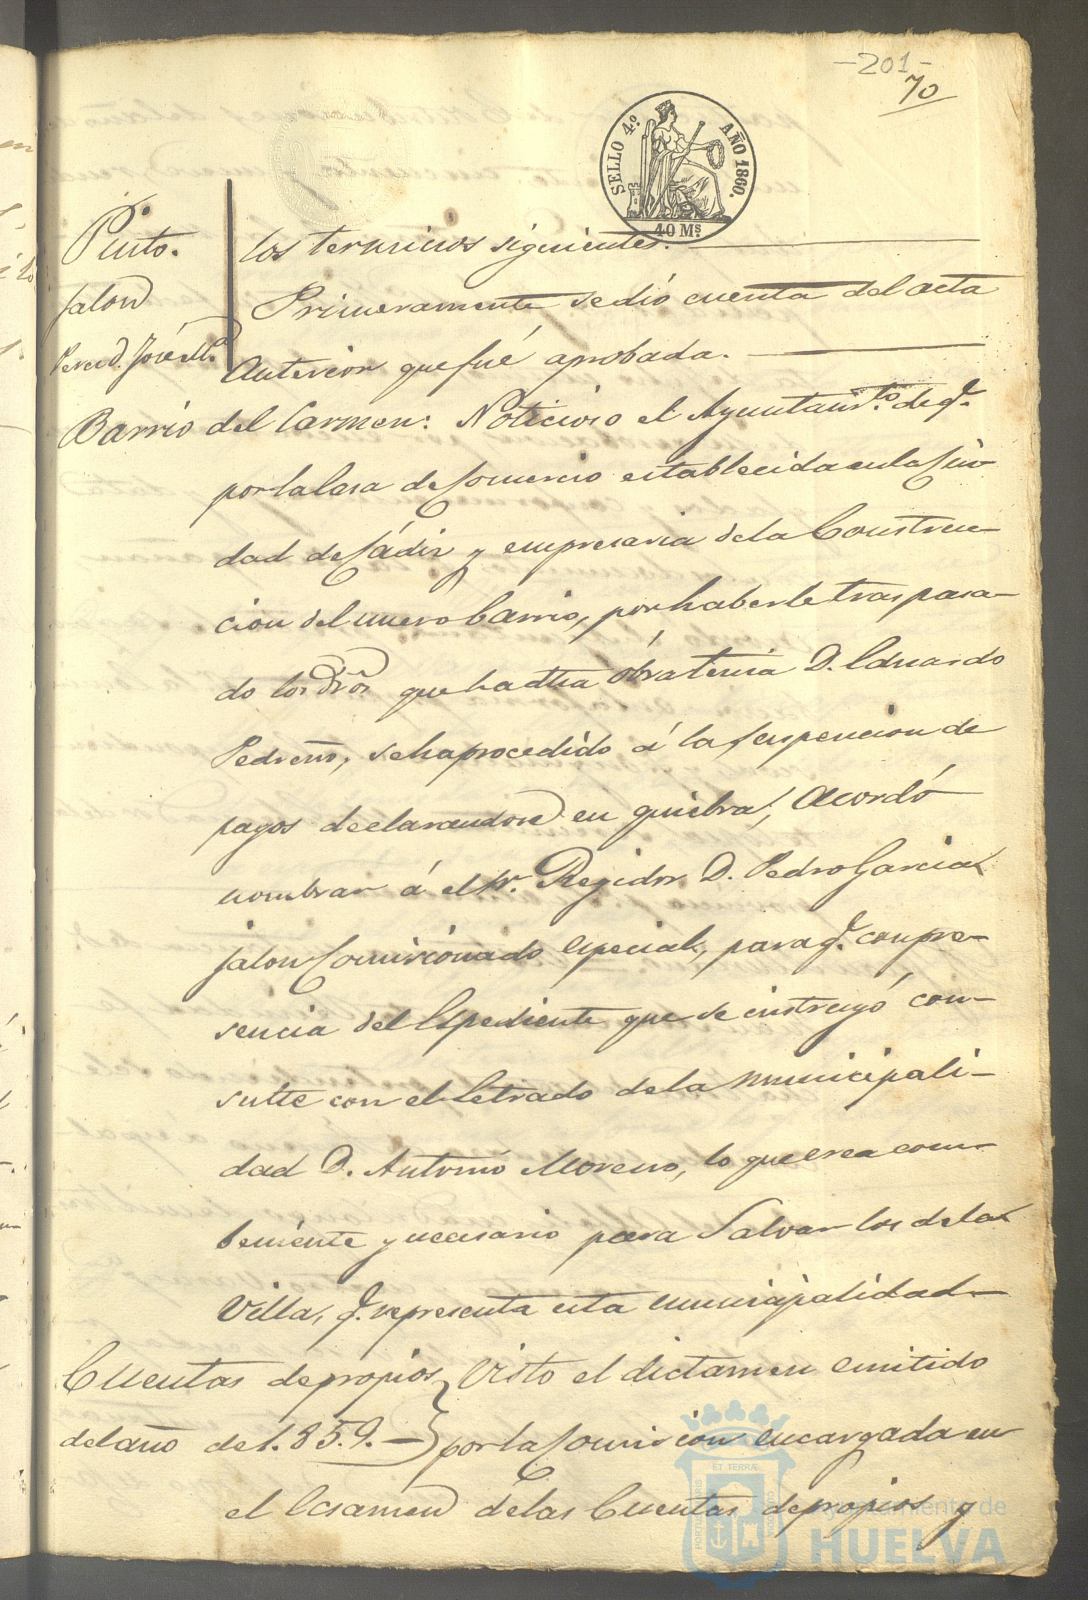 -201-
70
SELLO 4º AÑO 1860.
40 Ms
Pinto.
Jalon
Perez D. José Mª
los terminos siguientes.
Primeramente se dió cuenta del acta
anterior que fué aprobada.
Barrio del Carmen: Noticioso el Ayuntamto. de q.
por la Casa de Comercio establecida en la Ciu
dad de Cádiz y empresaria de la Construc-
cion del nuevo barrio, por haberle traspasa-
do los dros que ha dha obra tenia D. Eduardo
Pedreño, se ha procedido á la suspencion de
pagos declarandose en quiebra, Acordó
nombrar á el Sr. Regidor D. Pedro Garcia
Jalon Comisionado especial, para q. con pre-
sencia del Espediente que se instruyó con-
sulte con el Letrado de la municipali-
dad D. Antonio Moreno, lo que crea com-
beniente y necesario para Salvar los de la
Villa, q. representa esta municipalidad
Cuentas de propios Visto el dictamen emitido
del año de 1.859.- por la Comision encargada en
el Ecsamen de las Cuentas de propios y
ET TERRAE
Ayuntamiento de
HUELVA